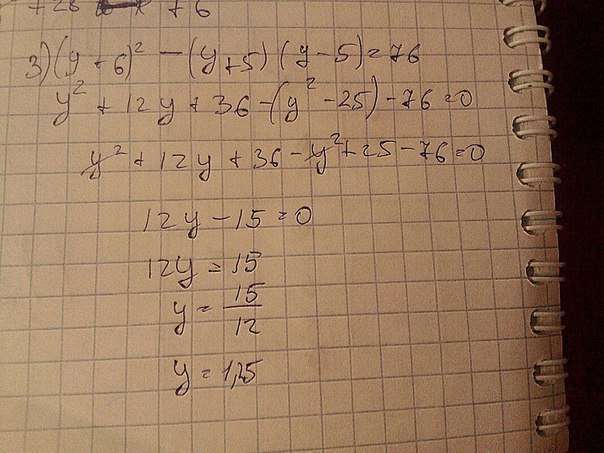 + 76
3) (y + 6)² - (y + 5) (y - 5) = 76
y² + 12y + 36 - (y² - 25) - 76 = 0
y² + 12y + 36 - y² + 25 - 76 = 0
12y - 15 = 0
12y = 15
y = 15/12
y = 1,25